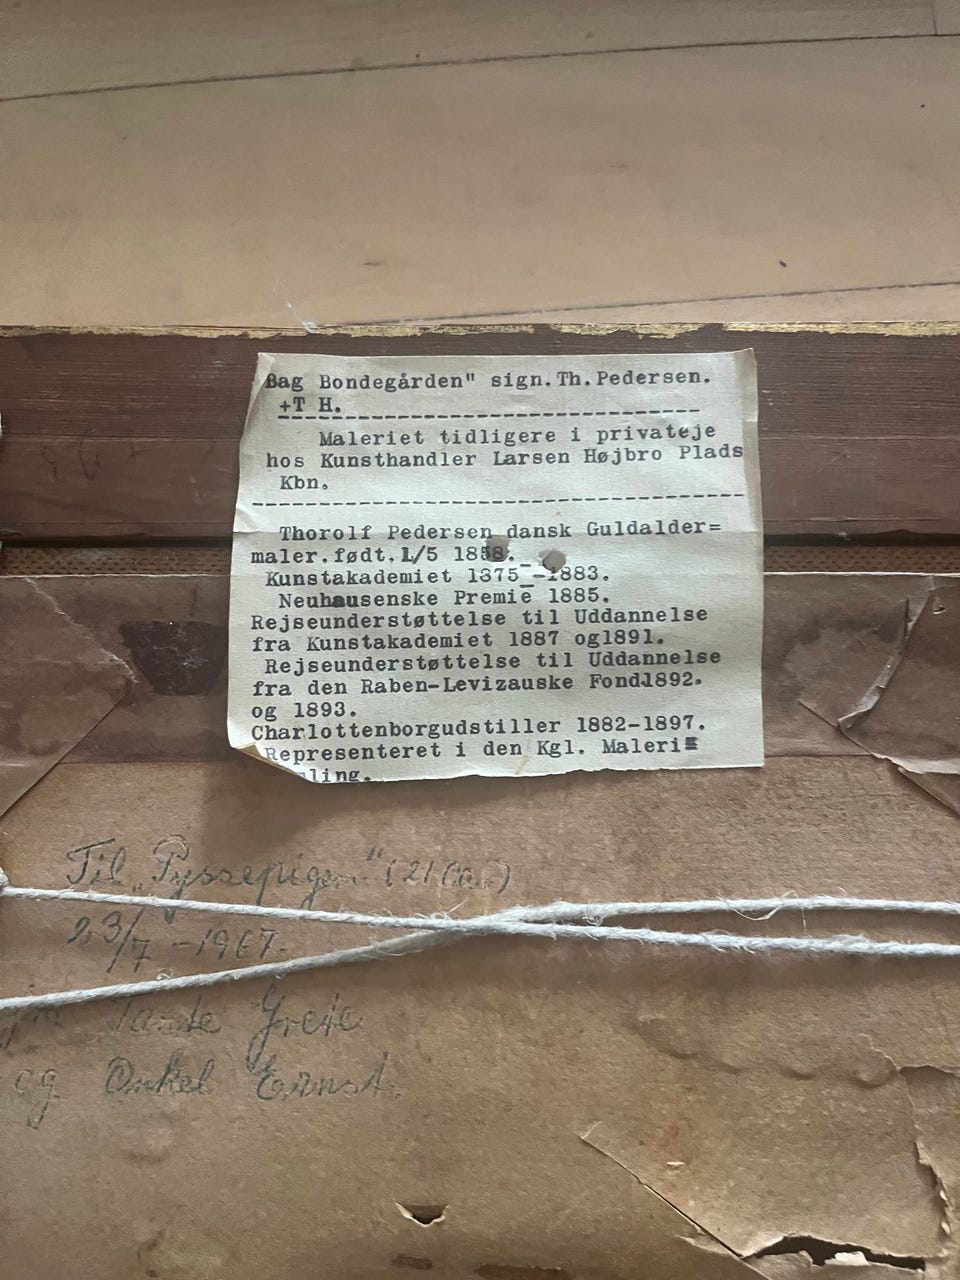 Bag Bondegården" sign.Th.Pedersen.
+T H.
Maleriet tidligere i privateje
hos Kunsthandler Larsen Højbro Plads
Kbn.
Thorolf Pedersen dansk Guldalder=
maler.født.1/5 1858.
Kunstakademiet 1875 -1883.
Neuhausenske Premie 1885.
Rejseunderstøttelse til Uddannelse
fra Kunstakademiet 1887 og1891.
Rejseunderstøttelse til Uddannelse
fra den Raben-Levizauske Fond1892.
og 1893.
Charlottenborgudstiller 1882-1897.
Representeret i den Kgl. Maleri=
ling.
Til „Pyssepigen" (21
23/7 -1967.
Tante Grete
og Onkel Ernst.